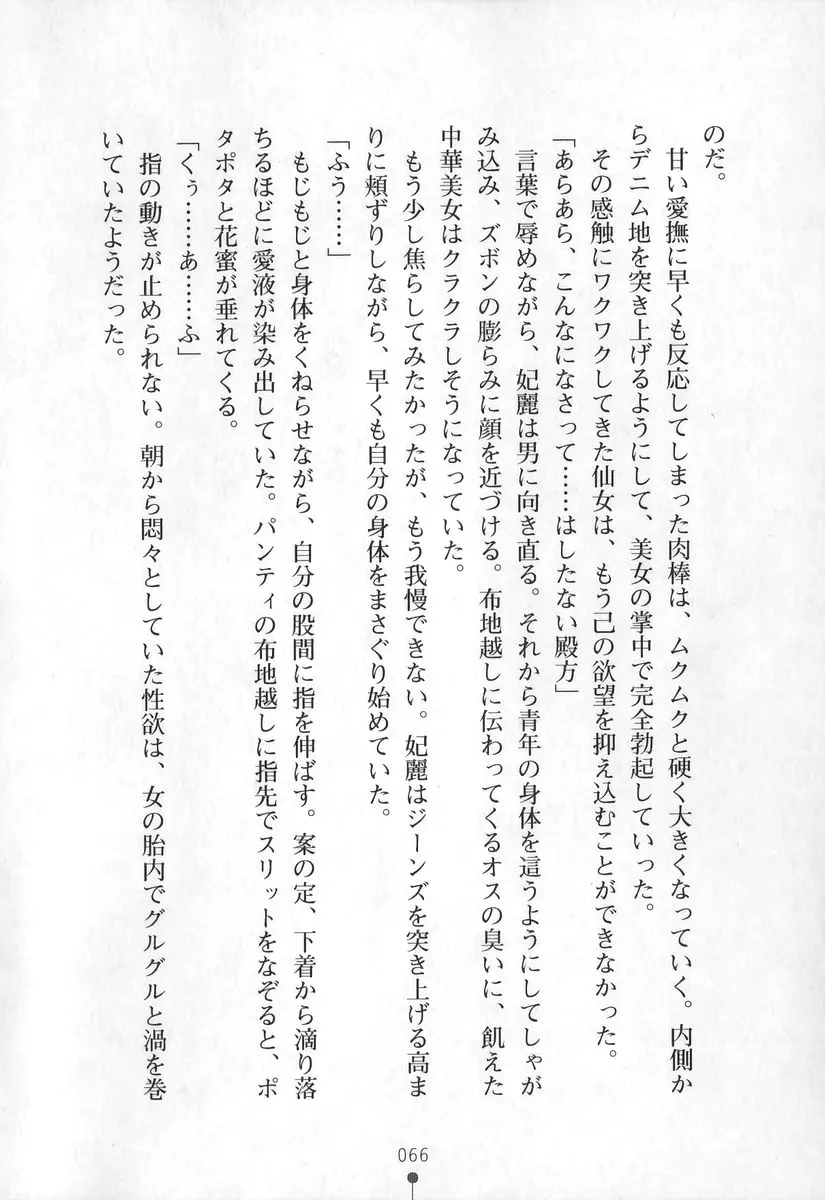 のだ。
　甘い愛撫に早くも反応してしまった肉棒は、ムクムクと硬く大きくなっていく。内側か
らデニム地を突き上げるようにして、美女の掌中で完全勃起していった。
　その感触にワクワクしてきた仙女は、もう己の欲望を抑え込むことができなかった。
「あらあら、こんなになさって……はしたない殿方」
　言葉で辱めながら、妃麗は男に向き直る。それから青年の身体を這うようにしてしゃが
み込み、ズボンの膨らみに顔を近づける。布地越しに伝わってくるオスの臭いに、飢えた
中華美女はクラクラしそうになっていた。
　もう少し焦らしてみたかったが、もう我慢できない。妃麗はジーンズを突き上げる高ま
りに頬ずりしながら、早くも自分の身体をまさぐり始めていた。
「ふぅ……」
　もじもじと身体をくねらせながら、自分の股間に指を伸ばす。案の定、下着から滴り落
ちるほどに愛液が染み出していた。パンティの布地越しに指先でスリットをなぞると、ポ
タポタと花蜜が垂れてくる。
「くぅ……あ……ふ」
　指の動きが止められない。朝から悶々としていた性欲は、女の胎内でグルグルと渦を巻
いていたようだった。
066